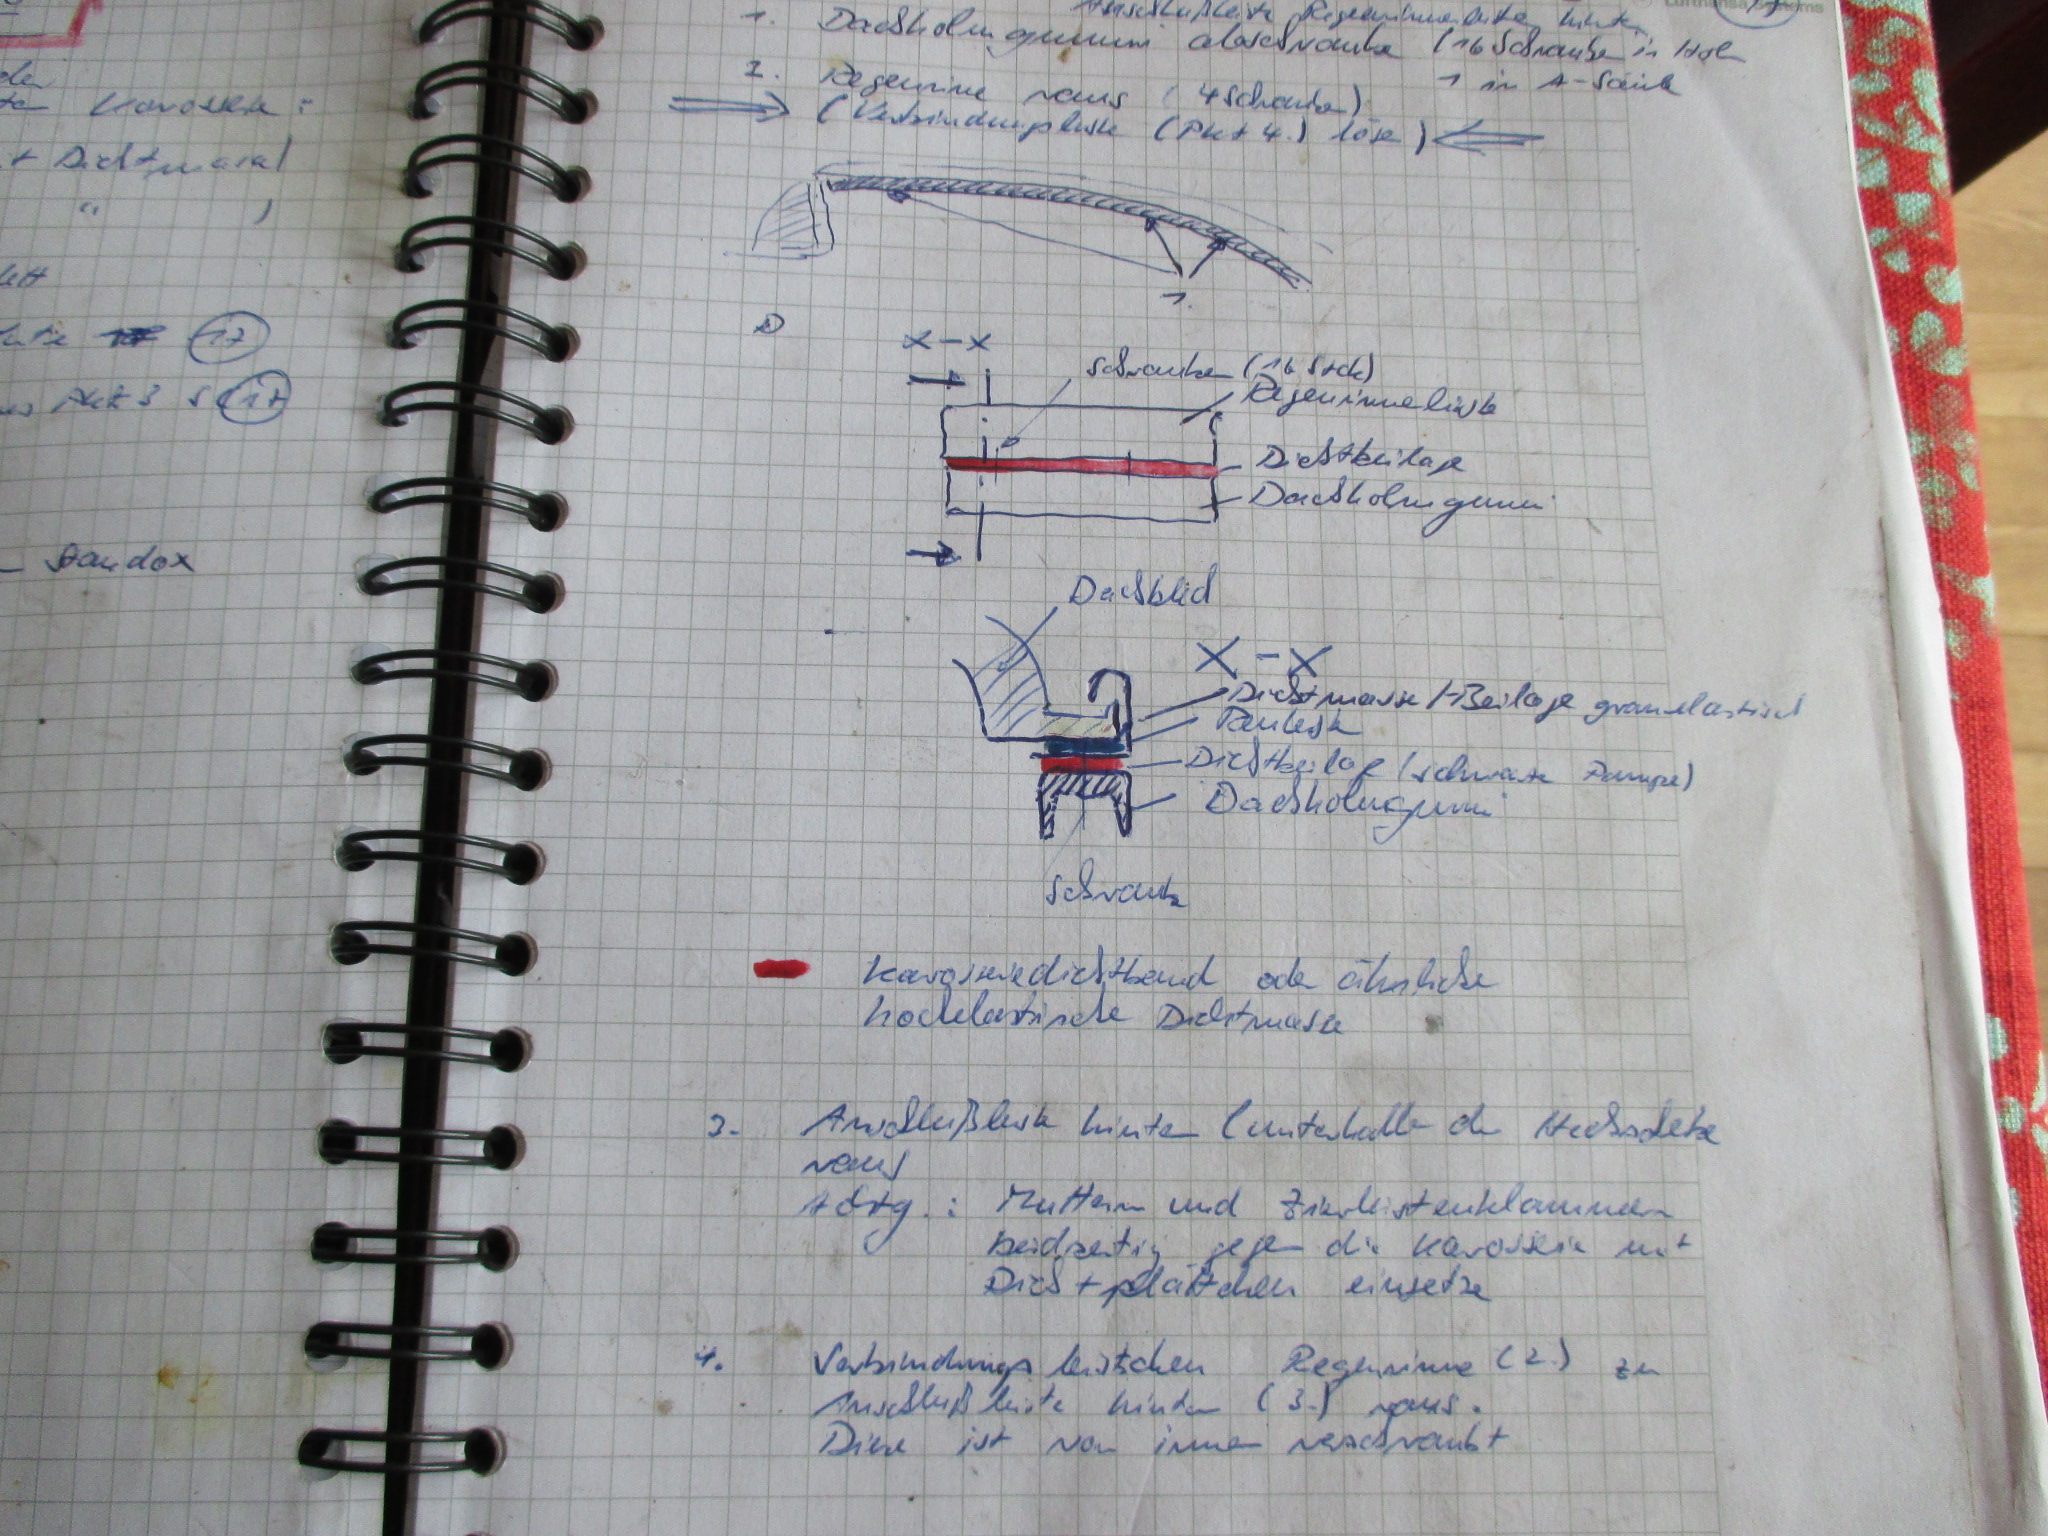 Lufthansa Systems
17
Anschlußleiste Regenrinneleiste hinten
1. Dachholmgummi abschraube (16 Schraube in Holm
1 in A-Säule
2. Regenrinne raus (4 Schraube)
(Verbindungsleiste (Pkt 4.) löse)
1.
x-x
Schrauben (16 Stck)
Regenrinneleiste
Dichtbeilage
Dachholmgummi
Dachblech
X-X
Dichtmasse/-Beilage
Dichtbeilage (schwarze Pampe)
Dachholmgummi
Schraube
Karosseriedichtband oder ähnliche
hochelastische Dichtmasse
3. Anschlußleiste hinten (unterhalb der Heckscheibe
raus
Achtg.: Muttern und Zierleistenklammern
beidseitig gegen die Karosserie mit
Dichtplättchen einsetze
4. Verbindungsleistchen Regenrinne (2.) zu
Anschlußleiste hinten (3.) raus.
Diese ist von innen verschraubt
Karosserie:
+ Dichtmaral
" )
17
Pkt 3 S 17
– Standox